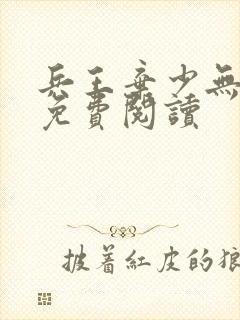 兵王棄少無
免費閱讀
披着紅皮的狼